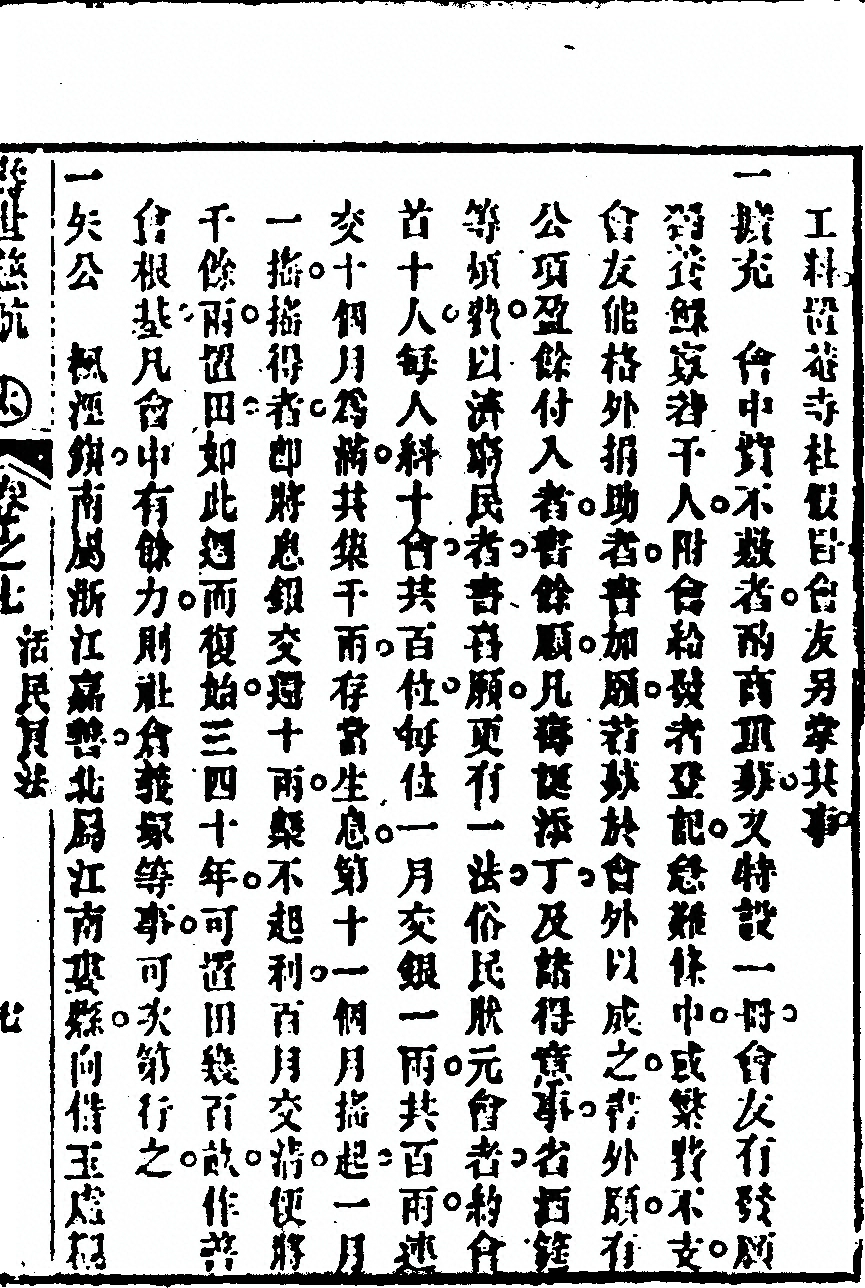 工料置菴寺社假旨會友另掌其事
一擴充 會中貲不敷者酌商重募又特設一冊會友有發願
獨養鰥寡若干人附會給發者登記急難條中或繁費不支
會友能格外捐助者書加願若募於會外以成之書外願有
公項盈餘付入者書餘願凡壽誕添丁及諸得意事省酒筵
等煩費以濟窮民者書喜願更有一法俗民狀元會者約會
首十人每人糾十會共百位每位一月交銀一兩共百兩連
交十個月爲滿共集千兩存當生息第十一個月搖起一月
一搖搖得者即將息銀交還十兩槩不起利百月交清便將
千餘兩置田如此週而復始三四十年可置田幾百畝作善
會根基凡會中有餘力則社倉義塚等事可次第行之
一矢公 楓涇鎮南屬浙江嘉善北屬江南婁縣向借玉虛觀
世慈航 卷之七 活民良法 七